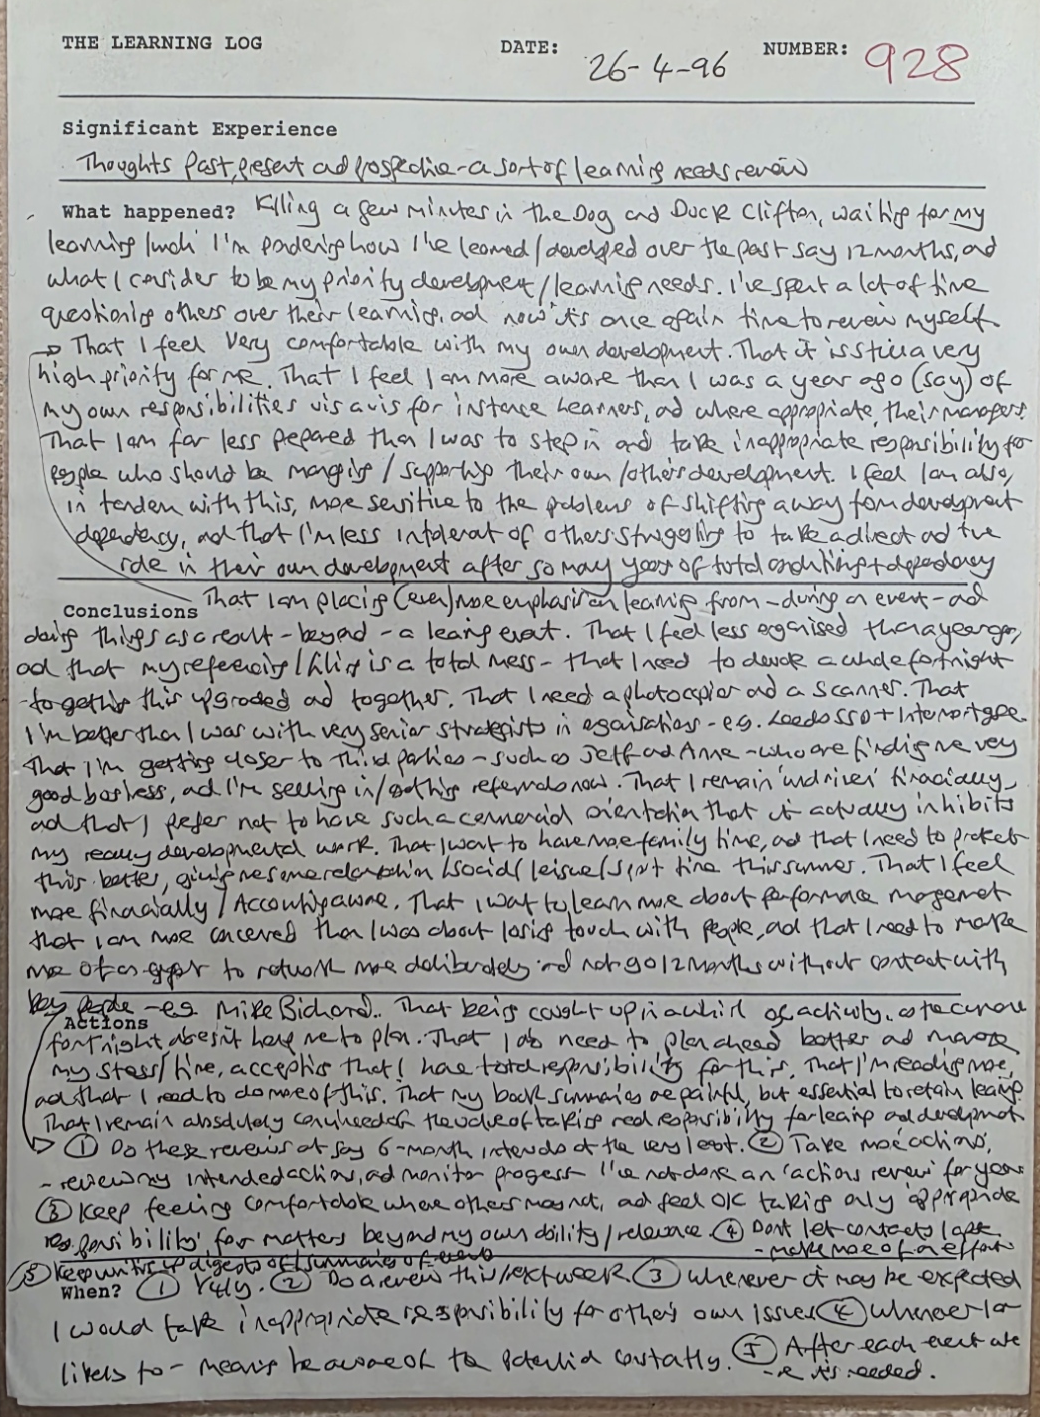 THE LEARNING LOG DATE: 26-4-96 NUMBER: 928
Significant Experience
Thoughts past, present and prospective - a sort of learning needs review
What happened? Killing a few minutes in the Dog and Duck Clifton, waiting for my
learning lunch I'm pondering how I've learned/developed over the past say 12 months, and
what I consider to be my priority development/learning needs. I've spent a lot of time
questioning others over their learning, and now it's once again time to review myself.
→ That I feel very comfortable with my own development. That it is still a very
high priority for me. That I feel I am more aware than I was a year ago (say) of
my own responsibilities vis a vis for instance learners, and where appropriate, their managers.
That I am far less prepared than I was to step in and take inappropriate responsibility for
people who should be managing/supporting their own/others development. I feel I am also,
in tandem with this, more sensitive to the problems of shifting away from development
dependency, and that I'm less intolerant of others struggling to take a direct and +ve
role in their own development after so many years of total conditioning + dependency
Conclusions That I am placing (even) more emphasis on learning from - during an event - and
doing things as a result - beyond - a learning event. That I feel less organised than a year ago,
and that my referencing/filing is a total mess - that I need to devote a whole fortnight
to getting this upgraded and together. That I need a photocopier and a scanner. That
I'm better than I was with very senior strategists in organisations - e.g. Leeds SSD +
That I'm getting closer to third parties - such as Jeff and Anne - who are finding me very
good business, and I'm selling in/ referrals now. That I remain 'undriven' financially,
and that I prefer not to have such a commercial orientation that it actually inhibits
my really developmental work. That I want to have more family time, and that I need to protect
this better, giving me some relaxation/social/leisure/ time this summer. That I feel
more financially/Accounting aware. That I want to learn more about performance management
that I am more concerned than I was about losing touch with people, and that I need to make
more of an effort to network more deliberately and not go 12 months without contact with
key people - e.g. Mike Bichard.. That being caught up in a whirl of activity, as to current
Actions
fortnight doesn't help me to plan. That I do need to plan ahead better and manage
my stress/time, accepting that I have total responsibility for this. That I'm reading more,
and that I need to do more of this. That my book summaries are painful, but essential to retain learning.
That I remain absolutely convinced of the value of taking real responsibility for learning and development
→ ① Do these reviews at say 6-month intervals at the very least. ② Take more actions,
- review my intended actions, and monitor progress - I've not done an 'actions review' for years
③ Keep feeling comfortable where others may not, and feel OK taking only 'appropriate
responsibility' for matters beyond my own ability/relevance. ④ Don't let contacts lapse
- make more of an effort
⑤ Keep writing up digests of/summaries of
When? ① ½yly. ② Do a review this/next week. ③ Whenever it may be expected
I would take inappropriate responsibility for other's own issues ④ Whenever I am
likely to - means be aware of the potential constantly. ⑤ After each event
it's needed.